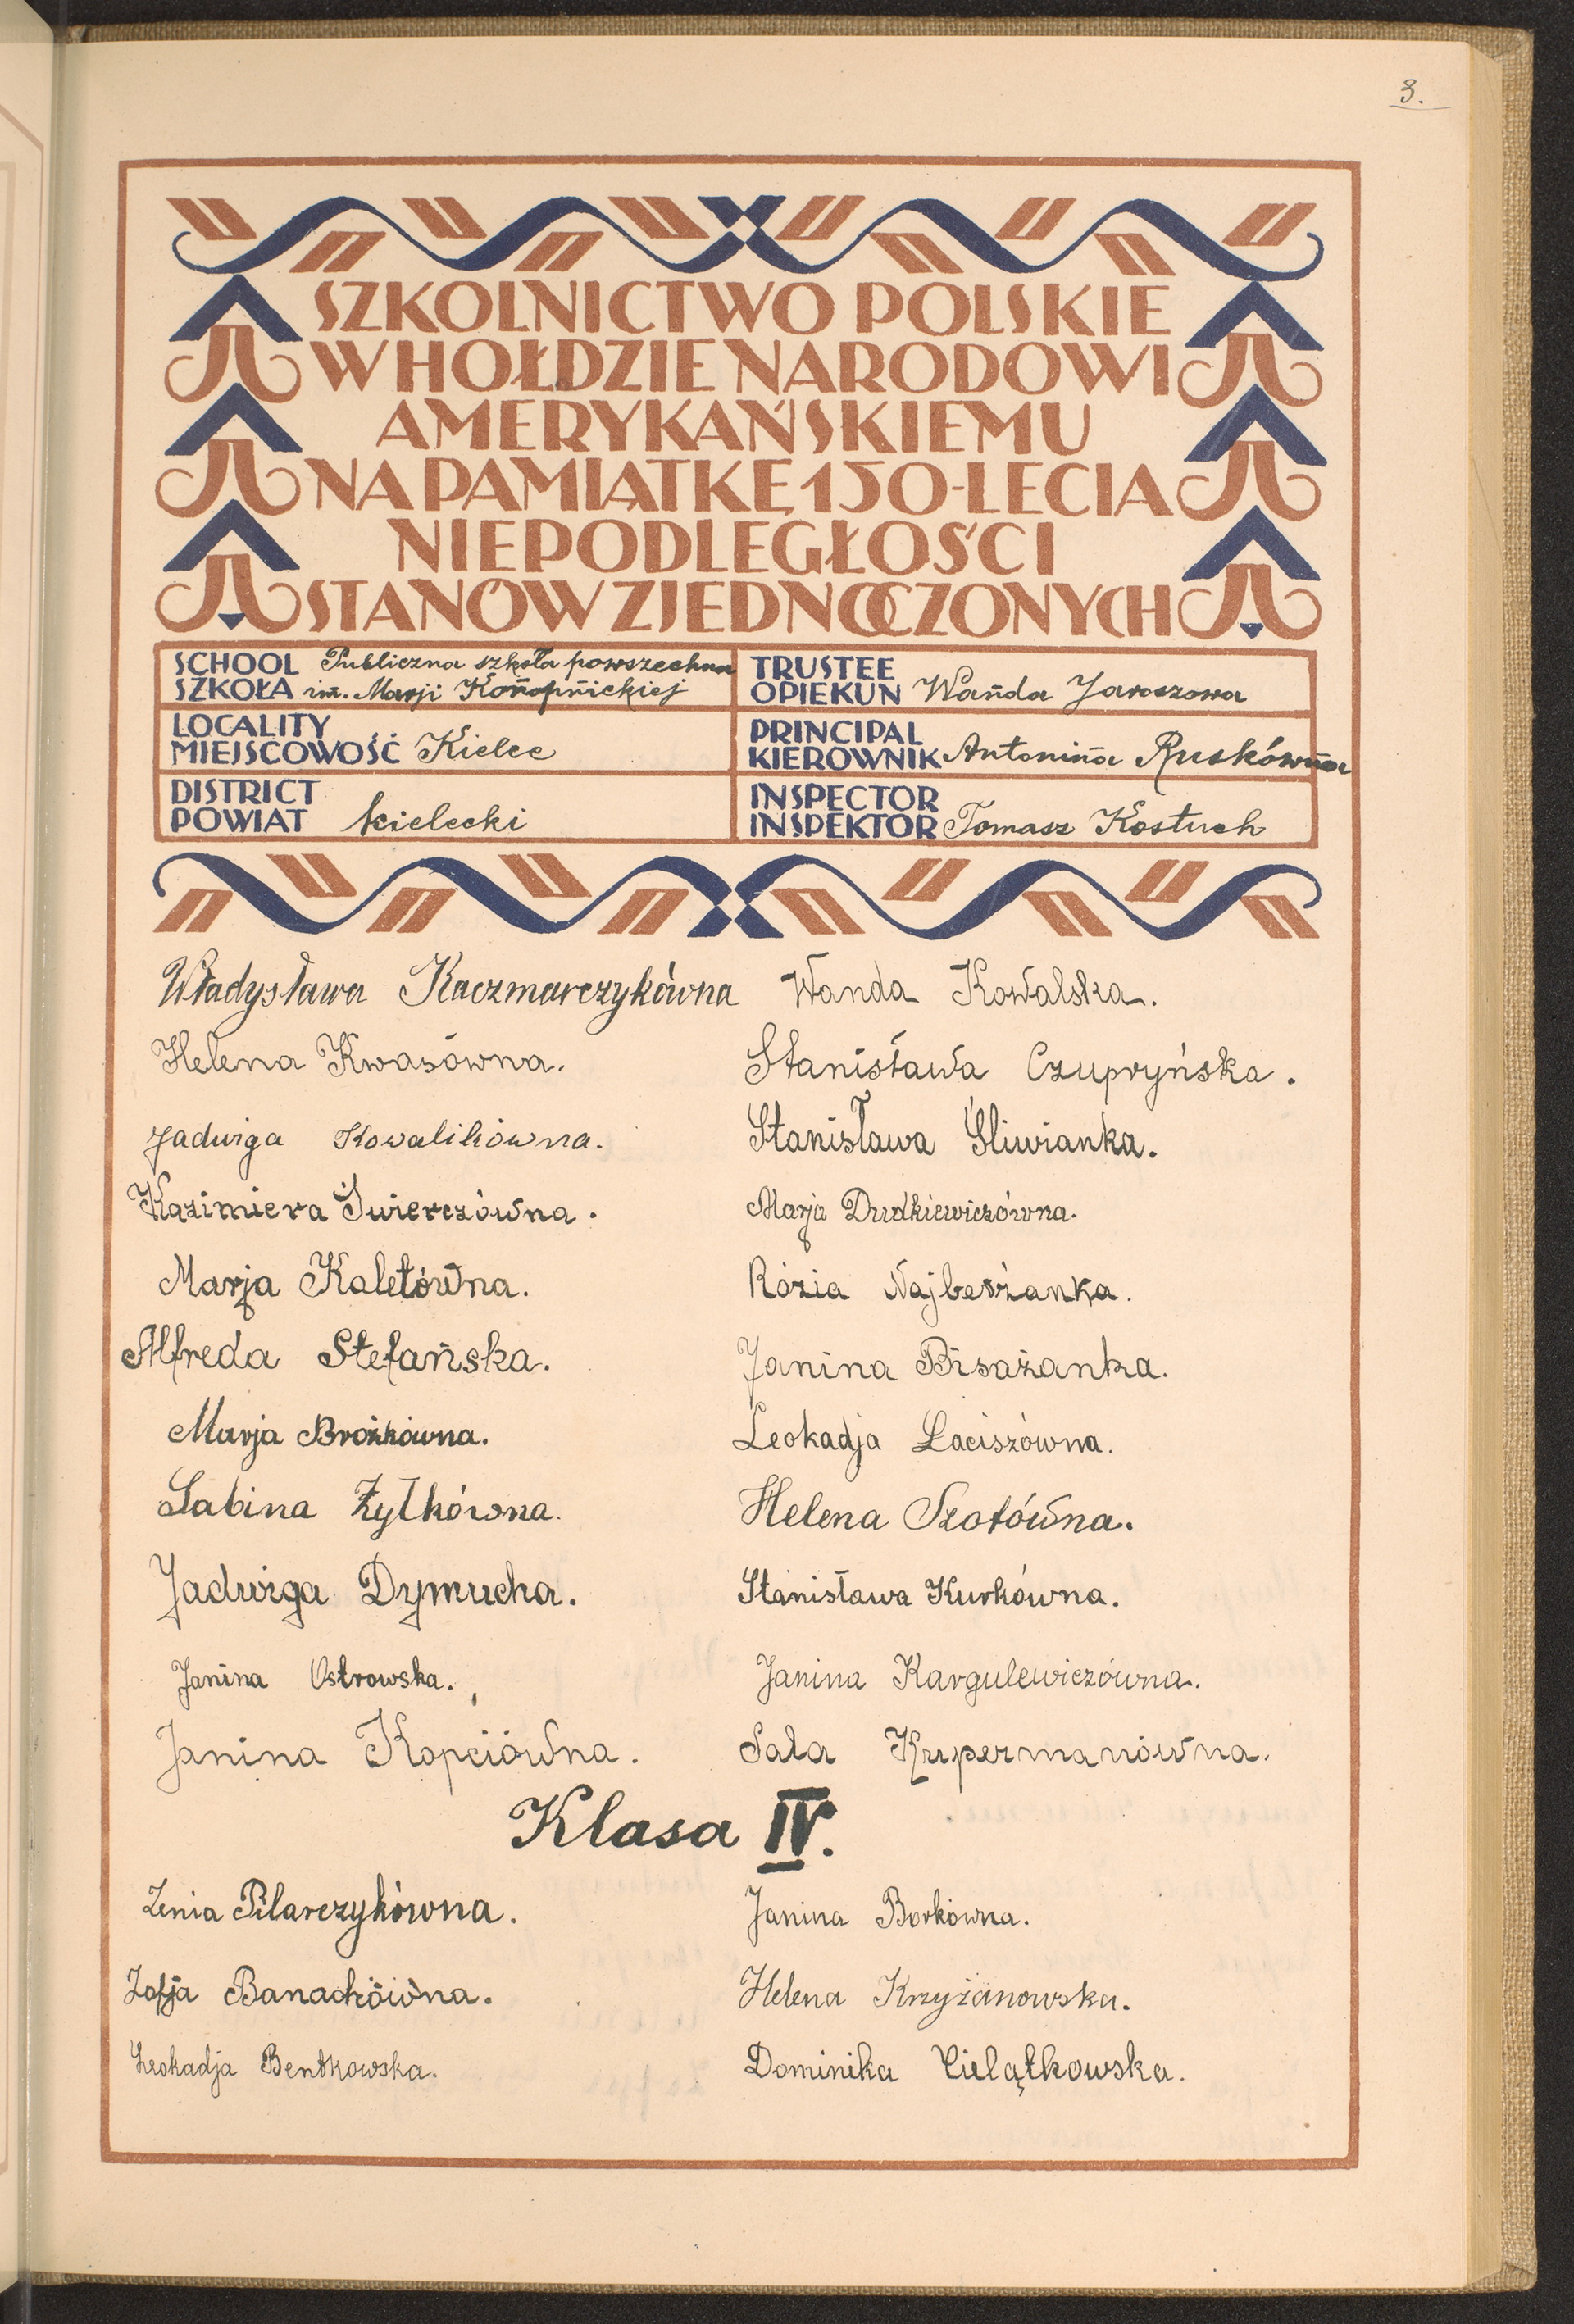 3.
SZKOLNICTWO POLSKIE
W HOŁDZIE NARODOWI
AMERYKAŃSKIEMU
NA PAMIĄTKĘ 150-LECIA
NIEPODLEGŁOŚCI
STANÓW ZJEDNOCZONYCH
SCHOOL Publiczna szkoła powszechna
SZKOŁA im. Marji Konopnickiej
TRUSTEE
OPIEKUN Wanda Jaroszowa
LOCALITY
MIEJSCOWOŚĆ Kielce
PRINCIPAL
KIEROWNIK Antonina Ruskówna
DISTRICT
POWIAT kielecki
INSPECTOR
INSPEKTOR Tomasz Kostuch
Władysława Kaczmarczykówna Wanda Kowalska.
Helena Kwasówna. Stanisława Czupryńska.
Jadwiga Kowalikówna. Stanisława Śliwianka.
Kazimiera Świerczówna. Marja Dudkiewiczówna.
Marja Kaletówna. Rózia Najberżanka.
Alfreda Stefańska. Janina Bisażanka.
Marja Brożkówna. Leokadja Łaciszówna.
Sabina Żyłkówna. Helena Szotówna.
Jadwiga Dymucha. Stanisława Kurkówna.
Janina Ostrowska. Janina Kargulewiczówna.
Janina Kopciówna. Sala Kupermanówna.
Klasa IV.
Zenia Pilarczykówna. Janina Borkówna.
Zofja Banachówna. Helena Krzyżanowska.
Leokadja Bentkowska. Dominika Cielątkowska.